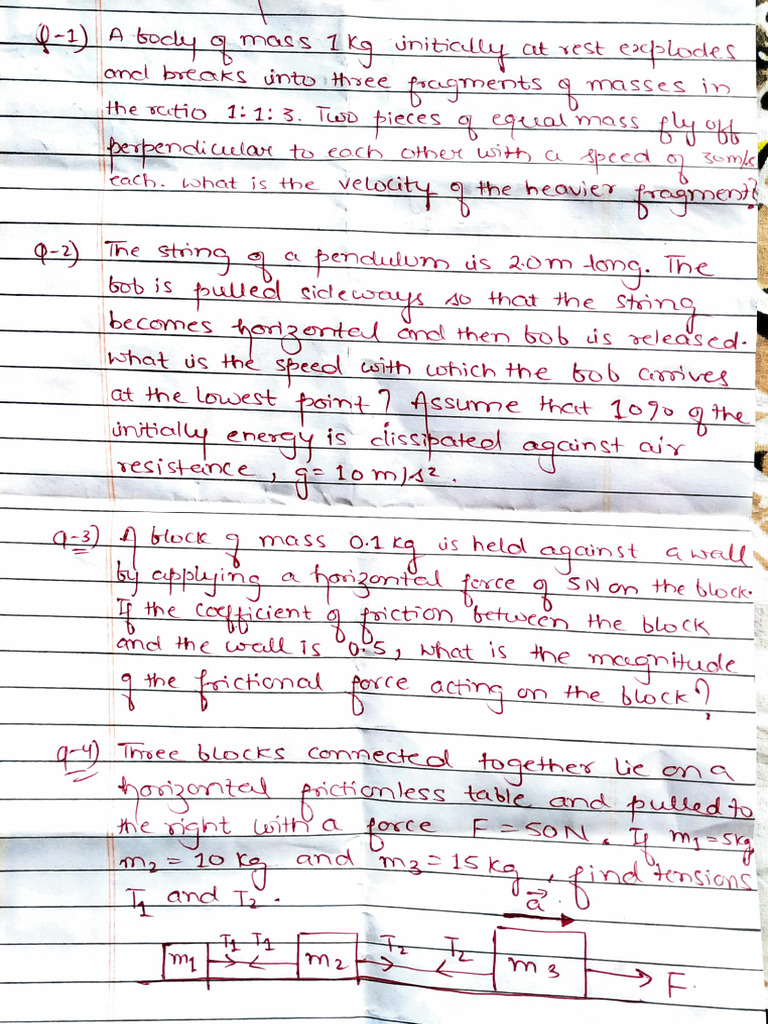 Q-1) A body of mass 1 kg initially at rest explodes
and breaks into three fragments of masses in
the ratio 1:1:3. Two pieces of equal mass fly off
perpendicular to each other with a speed of 30m/s
each. what is the velocity of the heavier fragment?
Q-2) The string of a pendulum is 2.0m long. The
bob is pulled sideways so that the string
becomes horizontal and then bob is released.
what is the speed with which the bob arrives
at the lowest point? Assume that 10% of the
initially energy is dissipated against air
resistance, g=10m/s².
Q-3) A block of mass 0.1 kg is held against a wall
by applying a horizontal force of 5N on the block.
If the coefficient of friction between the block
and the wall is 0.5, what is the magnitude
of the frictional force acting on the block?
Q-4) Three blocks connected together lie on a
horizontal frictionless table and pulled to
the right with a force F=50N. If m₁=5kg
m₂=10kg and m₃=15kg, find tensions
T₁ and T₂.
a⃗
m₁ T₁ T₁ m₂ T₂ T₂ m₃ F